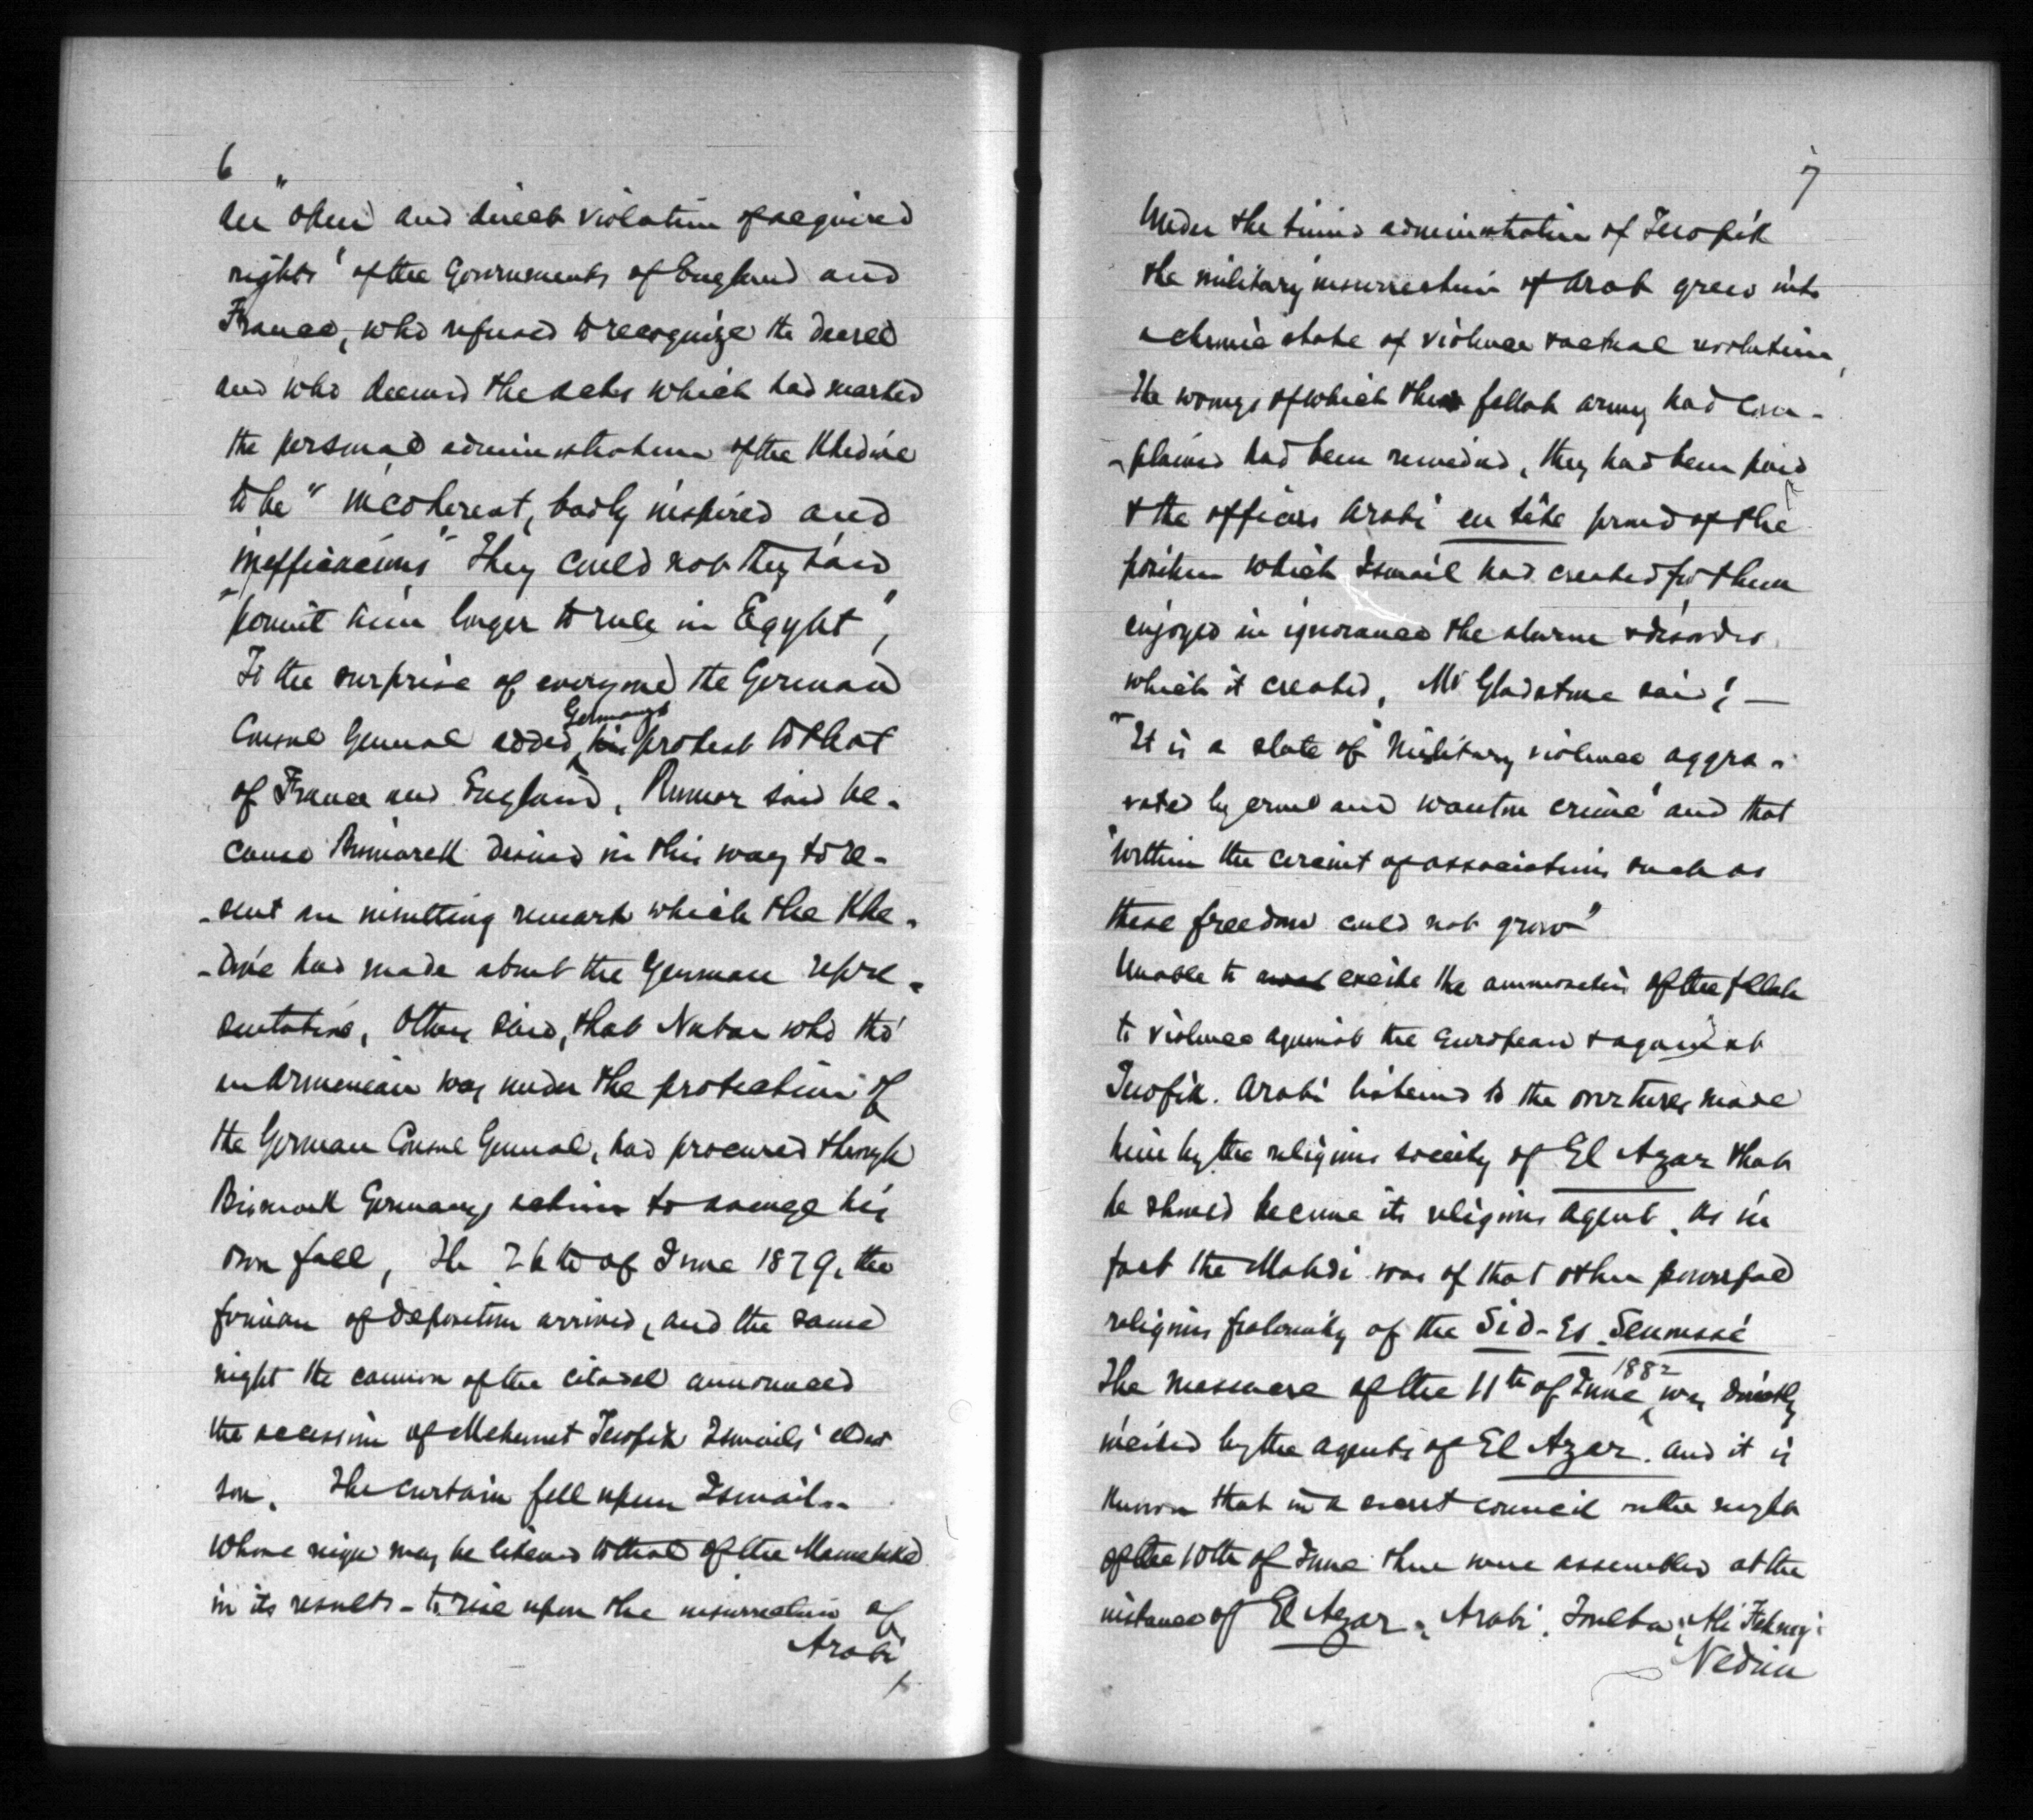 6
an "open and direct violation of acquired
rights" of the Governments of England and
France, who refused to recognize the decree
and who deemed the acts which had marked
the personal administration of the Khedive
to be "incoherent, badly inspired and
inefficacious" They could not they said
"permit him longer to rule in Egypt",
To the surprise of everyone the German
Consul General added Germany's protest to that
of France and England. Rumor said be-
cause Bismarck desired in this way to re-
-sent an insulting remark which the Khe-
-dive had made about the German repre-
sentative. Others said, that Nubar who tho'
an Armenian was under the protection of
the German Consul General, had procured through
Bismark Germany's action to avenge his
own fall, The 26th of June 1879, the
firman of deposition arrived, and the same
night the cannon of the citadel announced
the accession of Mehemet Tewfik Ismails' eldest
son. The curtain fell upon Ismail --
whose reign may be likened to that of the Mameluke
in its results - to rise upon the insurrection of
Arabi
7
Under the timid administration of Tewfik
the military insurrection of Arab grew into
a chronic state of violence & actual revolution,
The wrongs of which the fellah army had com-
-plained had been remedied, they had been paid
& the officers Arabi en tête proud of the
position which Ismail had created for them
enjoyed in ignorance the alarm & disorder
which it created, Mr Gladstone said; —
"It is a state of military violence aggra-
vated by cruel and wanton crime" and that
"within the circuit of associations such as
these freedom could not grow"
Unable to excite the animosities of the fellah
to violence against the European & against
Tewfik. Arabi listened to the overtures made
him by the religious society of El Azar that
he should become its religious agent, as in
fact the Mahdi was of that other powerful
religious fraternity of the Sid-Es-Senoussé
The massacre of the 11th of June 1882 was directly
incited by the agents of El Azar. and it is
known that in a secret council on the night
of the 10th of June there were assembled at the
instance of El Azar, Arabi, Toulba, Ali Fehmy
Nedim